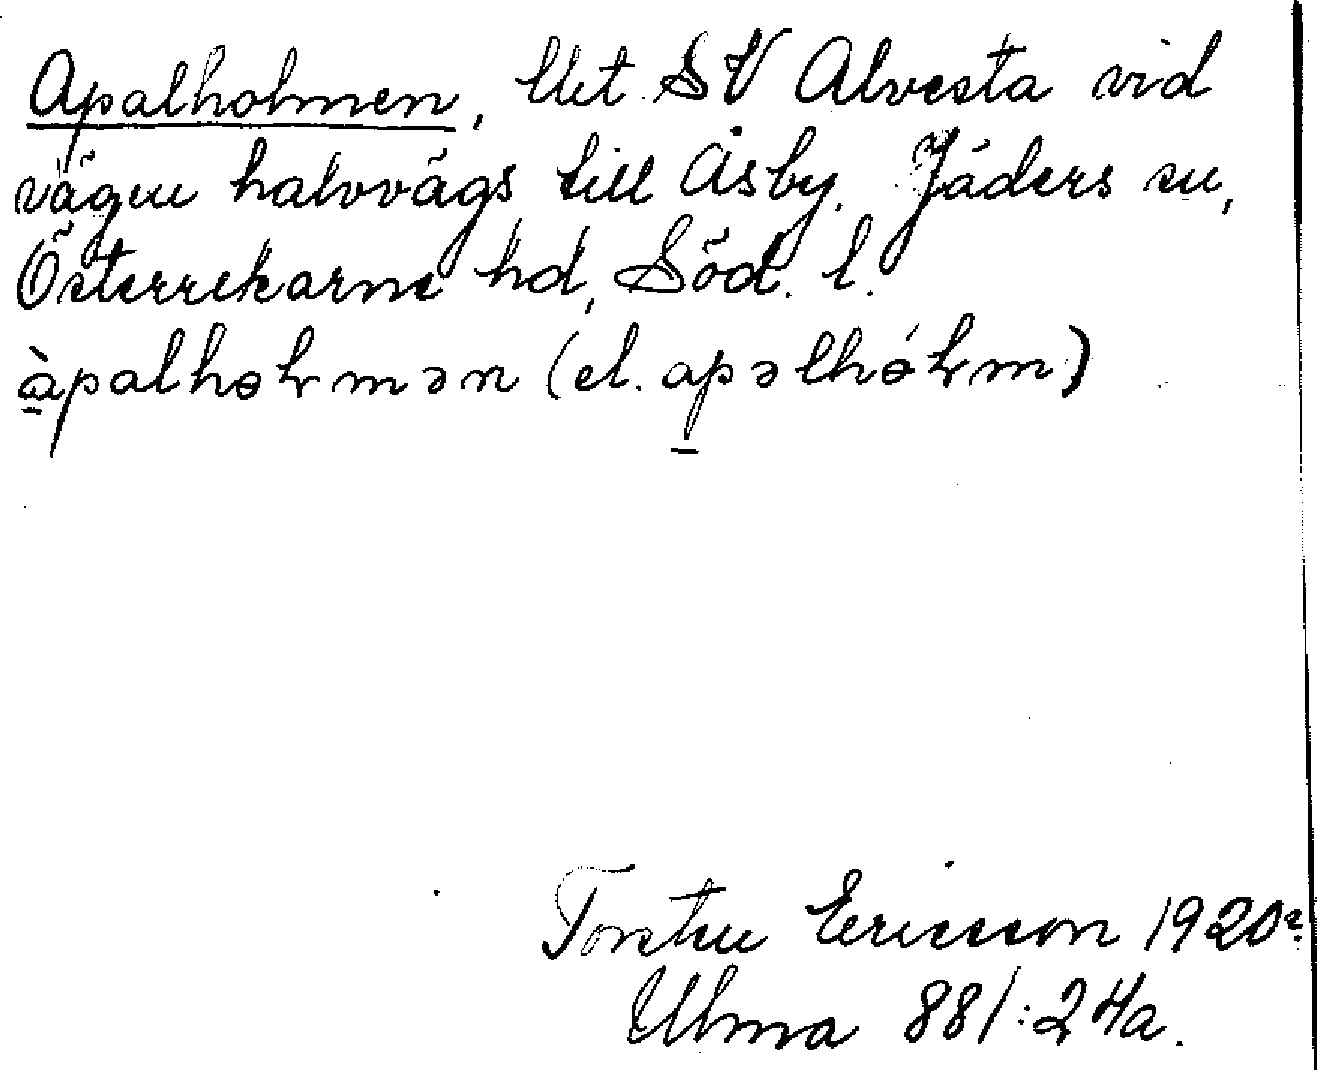 Apalholmen, litet SV Alvesta vid
vägen halvvägs till Åsby. Jäders sn,
Österrekarne hd, Söd. l.
àpalhoɫmən (el. apəlhóɫm)
Torsten Ericsson 1920?
Ulma 881:24a.